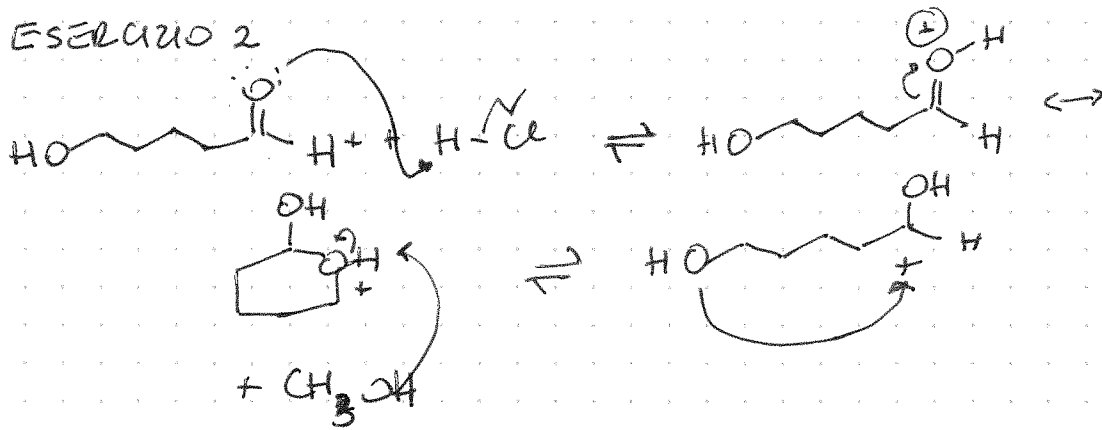 ESERCIZIO 2
HO O H + + H - Cl ⇌ HO O H H + ↔
OH O H + ⇌ HO OH H +
+ CH3OH